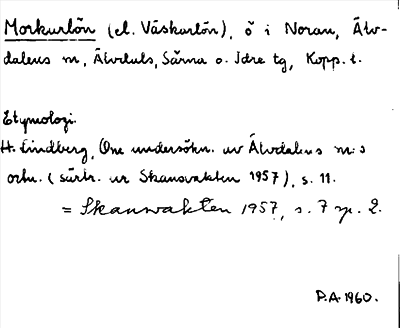 Morkurlön (el. Våskurlön), ö i Noran, Älv-
dalens sn, Älvdals, Särna o. Idre tg, Kopp. l.
Etymologi.
H. Lindberg, Om undersökn. av Älvdalens sn:s
ortn. (särtr. ur Skansvakten 1957), s. 11.
= Skansvakten 1957, s. 7 sp. 2.
P.A. 1960.